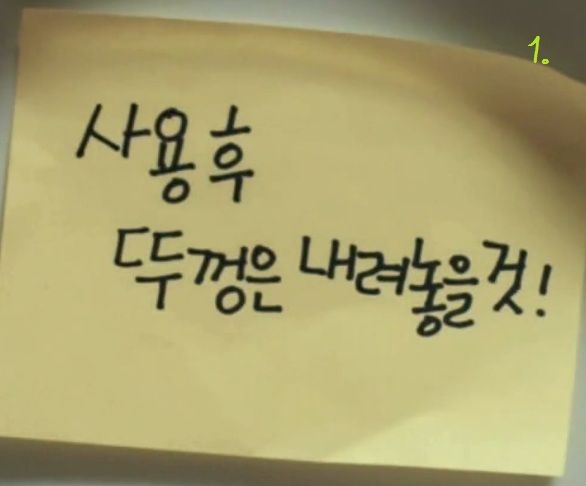 1.
사용후
뚜껑은 내려놓을것!